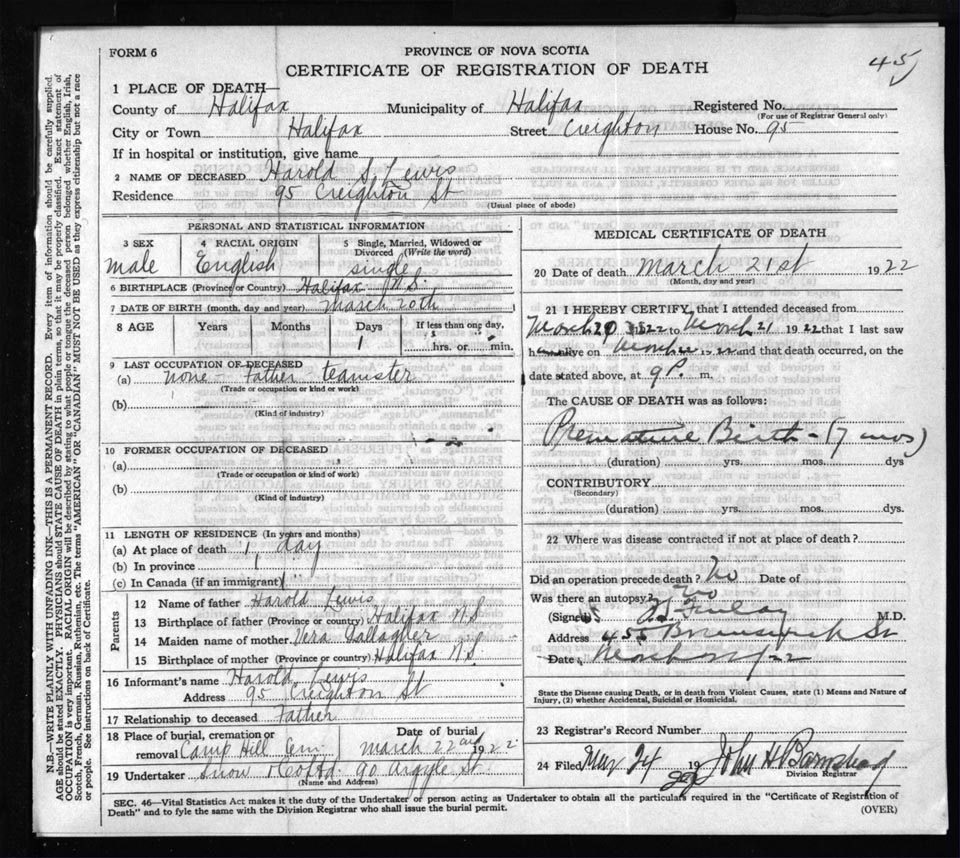 FORM 6
PROVINCE OF NOVA SCOTIA
CERTIFICATE OF REGISTRATION OF DEATH
45
1 PLACE OF DEATH—
County of Halifax Municipality of Halifax Registered No.
(For use of Registrar General only)
City or Town Halifax Street Creighton House No. 95
If in hospital or institution, give name
2 NAME OF DECEASED Harold S Lewis
Residence 95 Creighton St
(Usual place of abode)
PERSONAL AND STATISTICAL INFORMATION
3 SEX 4 RACIAL ORIGIN 5 Single, Married, Widowed or
Divorced (Write the word)
male English single
6 BIRTHPLACE (Province or Country) Halifax N.S.
7 DATE OF BIRTH (month, day and year) March 20th
8 AGE Years Months Days If less than one day,
1 hrs. or min.
9 LAST OCCUPATION OF DECEASED
(a) none - Father teamster
(Trade or occupation or kind of work)
(b)
(Kind of industry)
10 FORMER OCCUPATION OF DECEASED
(a)
(Trade or occupation or kind of work)
(b)
(Kind of industry)
11 LENGTH OF RESIDENCE (In years and months)
(a) At place of death 1 day
(b) In province
(c) In Canada (if an immigrant)
Parents
12 Name of father Harold Lewis
13 Birthplace of father (Province or country) Halifax N.S
14 Maiden name of mother Vera Gallagher
15 Birthplace of mother (Province or country) Halifax N.S.
16 Informant's name Harold Lewis
Address 95 Creighton St
17 Relationship to deceased Father
18 Place of burial, cremation or Date of burial
removal Camp Hill Cem March 22nd 1922
19 Undertaker Snow & Co Ltd 90 Argyle St.
(Name and Address)
MEDICAL CERTIFICATE OF DEATH
20 Date of death March 21st 1922
(Month, day and year)
21 I HEREBY CERTIFY, that I attended deceased from
March 20 1922 to March 21 1922 that I last saw
h alive on 1922 and that death occurred, on the
date stated above, at 9 P. m.
The CAUSE OF DEATH was as follows:
Premature Birth - (7 mos)
(duration) yrs. mos. dys
CONTRIBUTORY
(Secondary)
(duration) yrs. mos. dys.
22 Where was disease contracted if not at place of death?
Did an operation precede death? No Date of
Was there an autopsy? No
(Signed) Finlay M.D.
Address 455 Brunswick St
Date March 22
State the Disease causing Death, or in death from Violent Causes, state (1) Means and Nature of
Injury, (2) whether Accidental, Suicidal or Homicidal.
23 Registrar's Record Number
24 Filed Mar 24 19 John H Barnstead
Division Registrar
SEC. 46—Vital Statistics Act makes it the duty of the Undertaker or person acting as Undertaker to obtain all the particulars required in the "Certificate of Registration of
Death" and to fyle the same with the Division Registrar who shall issue the burial permit. (OVER)
N.B.—WRITE PLAINLY WITH UNFADING INK—THIS IS A PERMANENT RECORD. Every item of information should be carefully supplied.
AGE should be stated EXACTLY. PHYSICIANS should STATE CAUSE OF DEATH in plain terms, so that it may be properly classified. Exact statement of
OCCUPATION is very important. RACIAL ORIGIN will be described by stating to what people or tongue the deceased person belonged whether English, Irish,
Scotch, French, German, Russian, Ruthenian, etc. The terms "AMERICAN" OR "CANADIAN" MUST NOT BE USED as they express citizenship but not a race
or people. See instructions on back of Certificate.